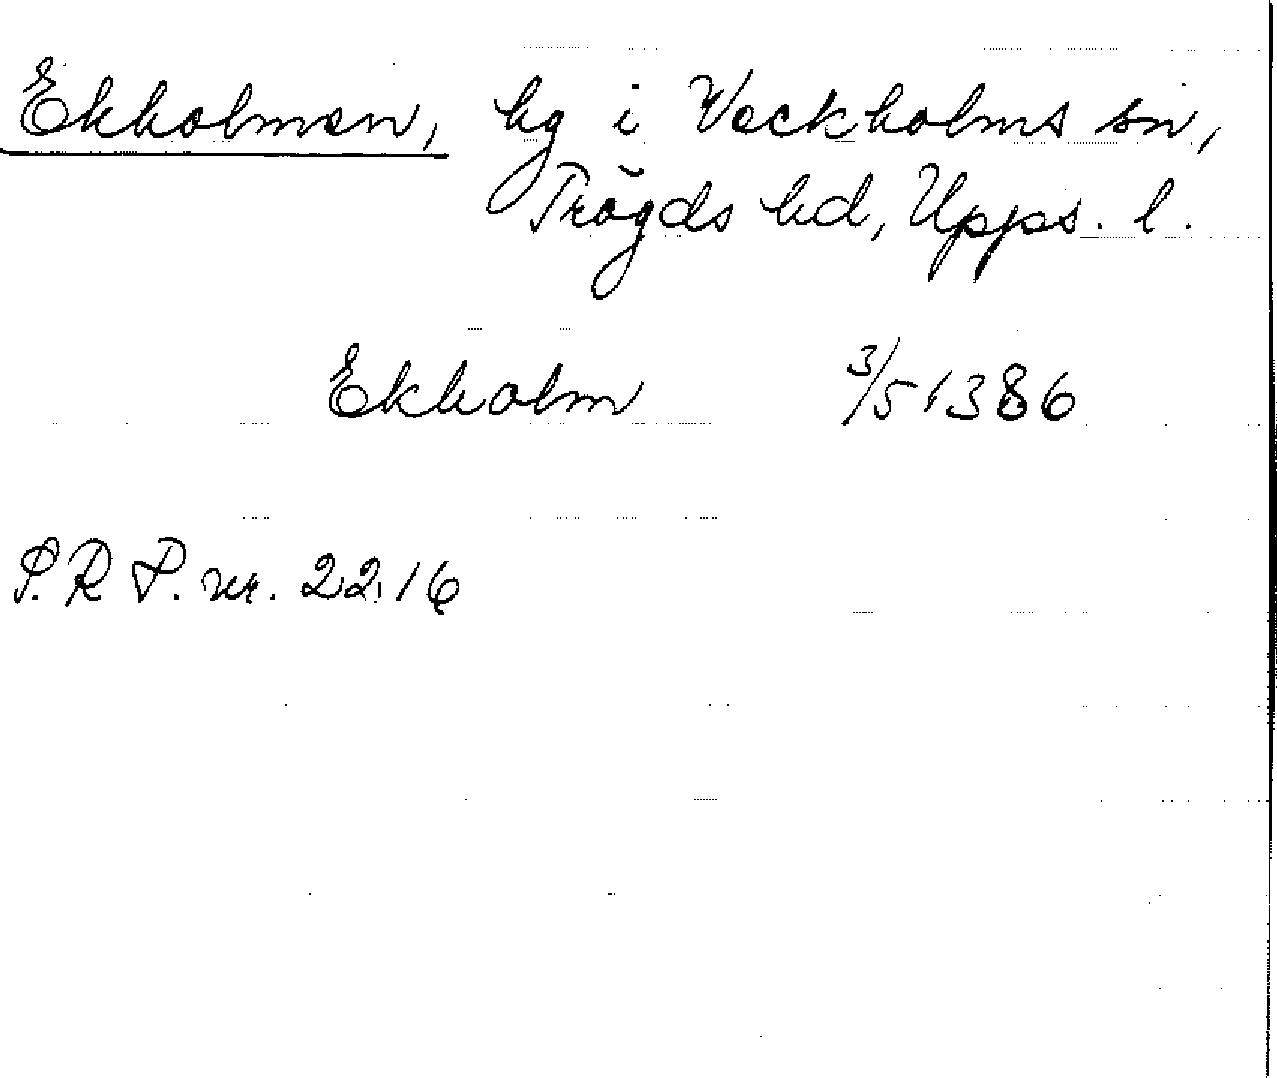 Ekholmen, hg i Veckholms sn,
Trögds hd, Upps. l.
Ekholm 3/5 1386
S.R P. nr. 2216